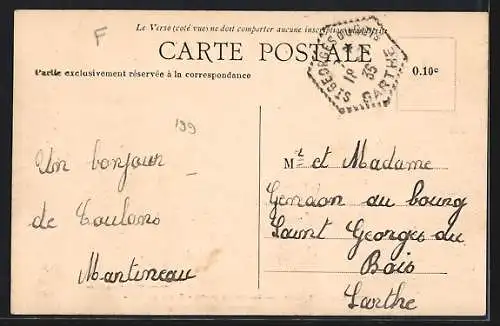 F
Le Verso (coté vue) ne doit comporter aucune inscription
CARTE POSTALE
Partie exclusivement réservée à la correspondance
ST GEORGES DU BOIS
18
35
SARTHE
0.10c
199
Un bonjour
de Toulans
Martineau
Mr et Madame
Genson du bourg
Saint Georges du
Bois
Sarthe